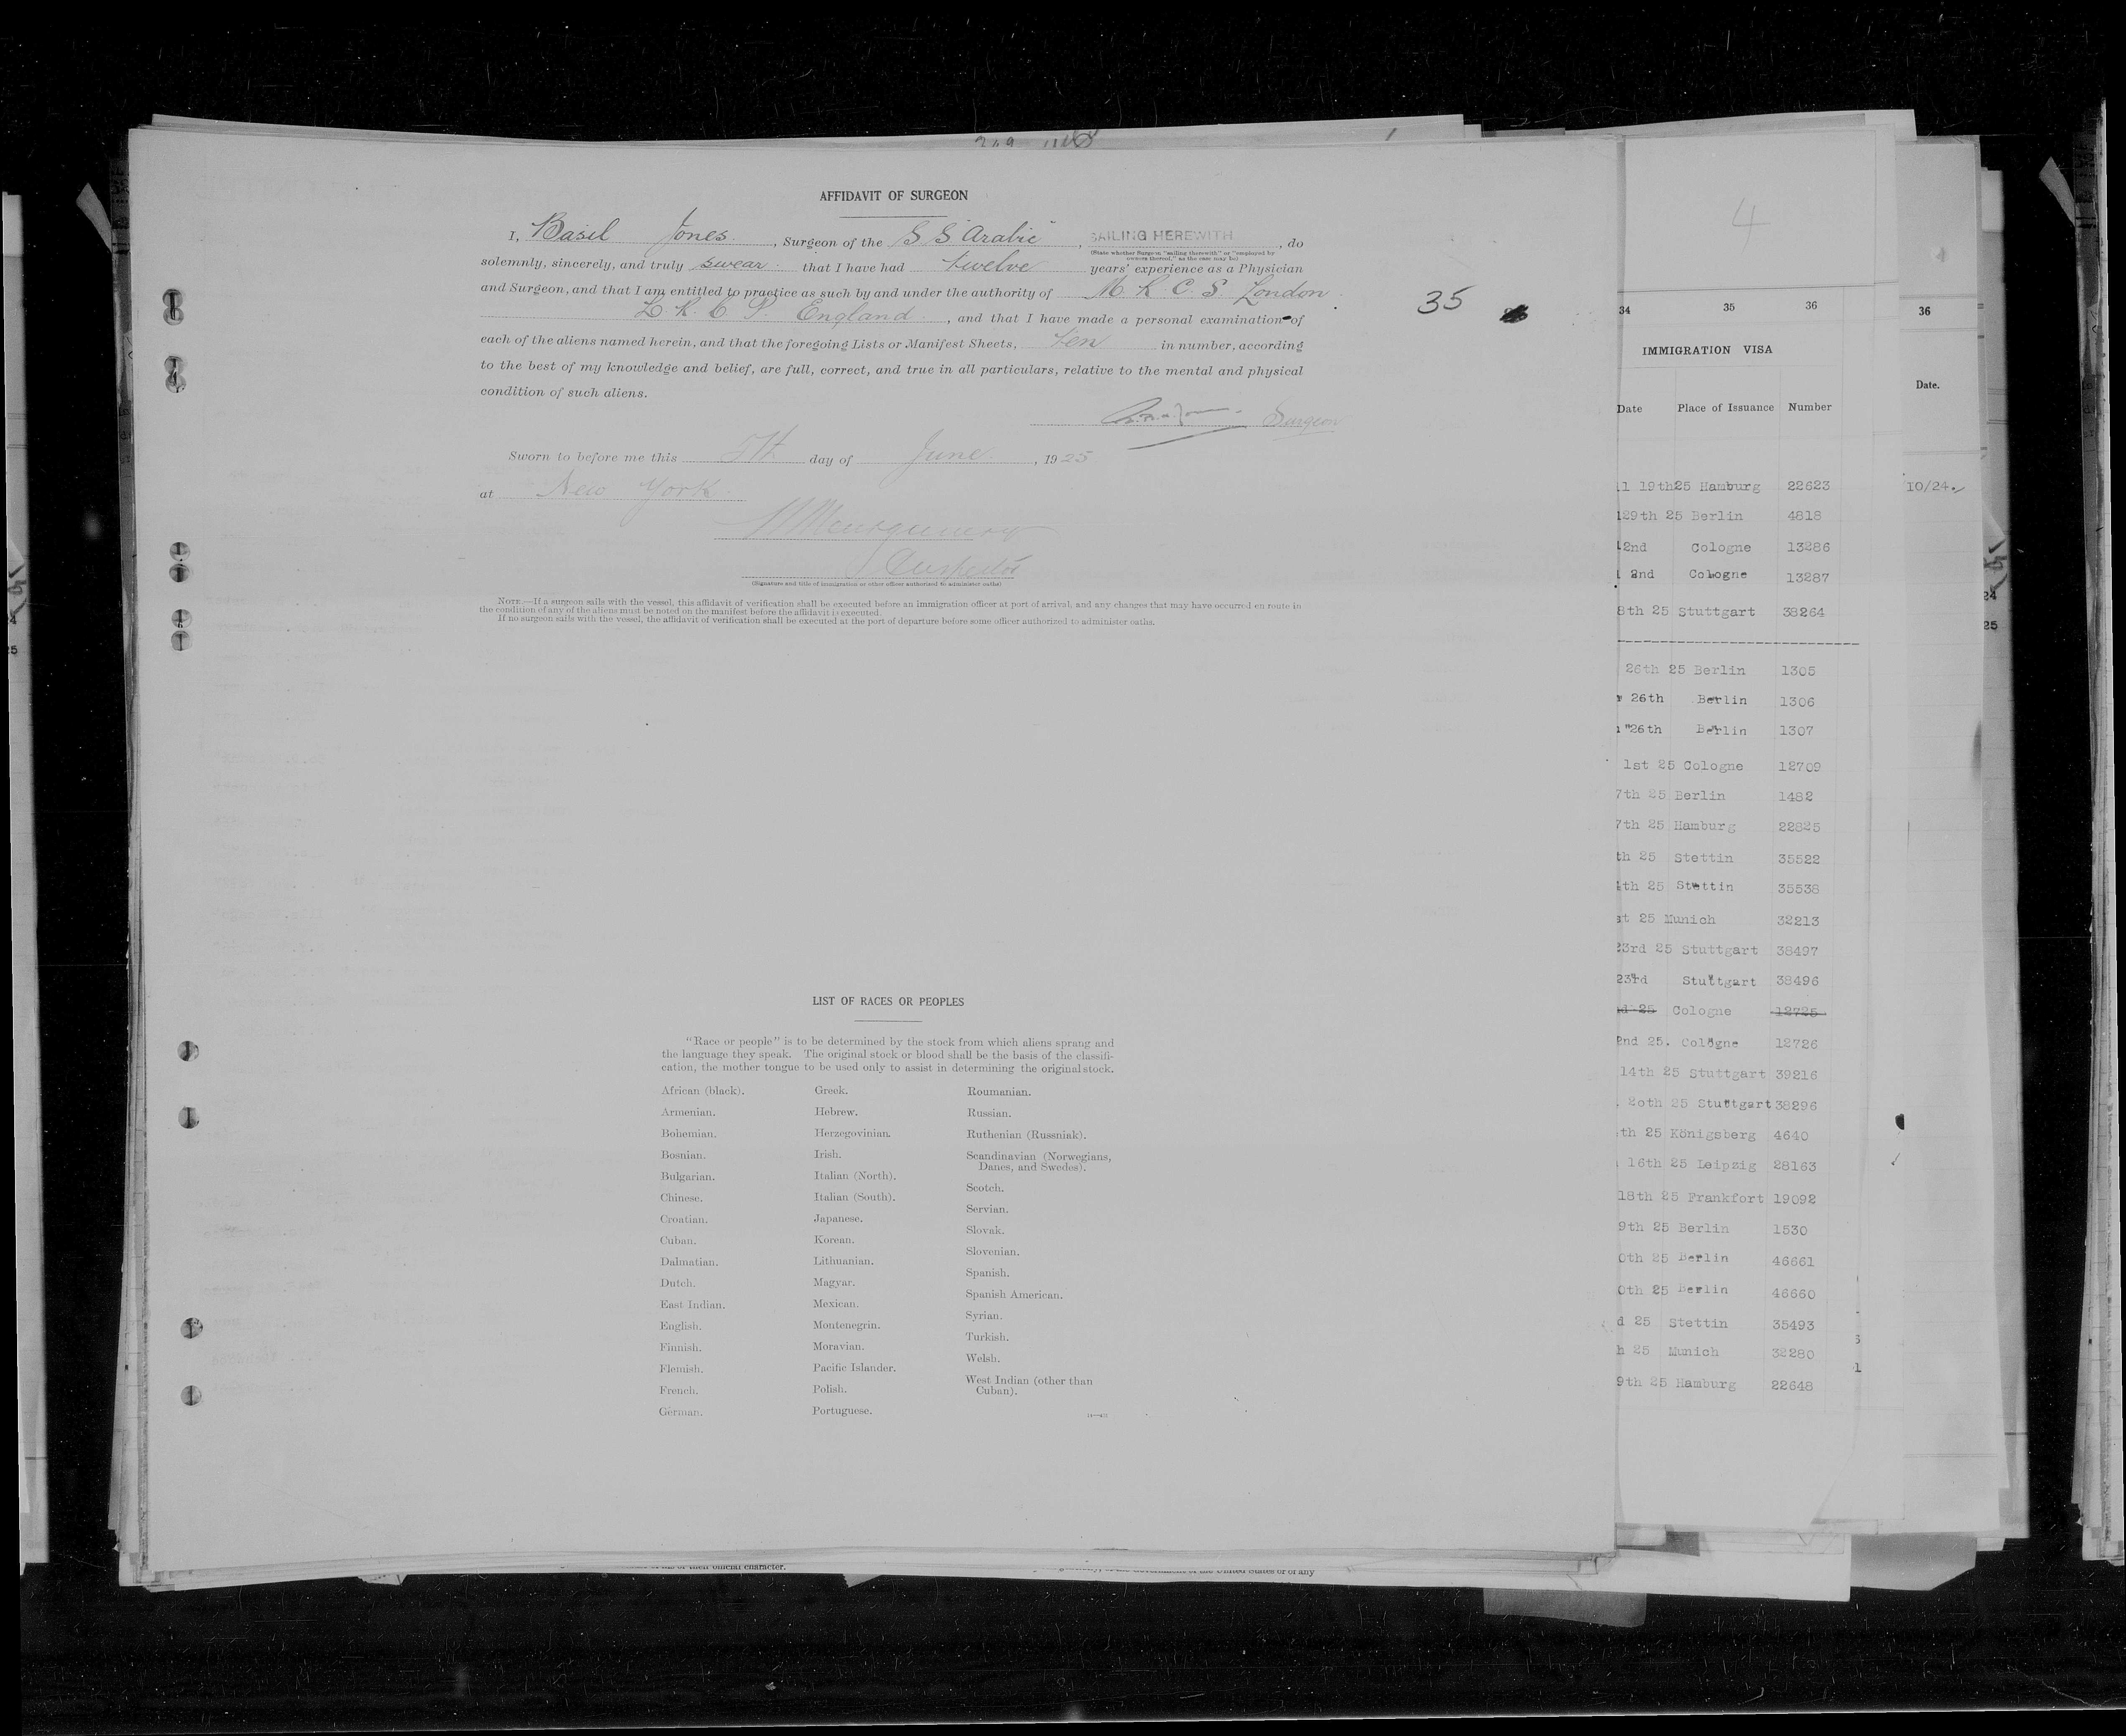 AFFIDAVIT OF SURGEON
I, Basil Jones, Surgeon of the S S "Arabic", SAILING HEREWITH, do
(State whether Surgeon "sailing therewith" or "employed by
owners thereof," as the case may be)
solemnly, sincerely, and truly swear that I have had twelve years' experience as a Physician
and Surgeon, and that I am entitled to practice as such by and under the authority of M. R. C. S. London
L. R. C. P. England, and that I have made a personal examination of
35
each of the aliens named herein, and that the foregoing Lists or Manifest Sheets, ten in number, according
to the best of my knowledge and belief, are full, correct, and true in all particulars, relative to the mental and physical
condition of such aliens.
Surgeon
Sworn to before me this day of June, 1925
at New York
Inspector
(Signature and title of immigration or other officer authorized to administer oaths)
NOTE.—If a surgeon sails with the vessel, this affidavit of verification shall be executed before an immigration officer at port of arrival, and any changes that may have occurred en route in
the condition of any of the aliens must be noted on the manifest before the affidavit is executed.
If no surgeon sails with the vessel, the affidavit of verification shall be executed at the port of departure before some officer authorized to administer oaths.
LIST OF RACES OR PEOPLES
"Race or people" is to be determined by the stock from which aliens sprang and
the language they speak. The original stock or blood shall be the basis of the classifi-
cation, the mother tongue to be used only to assist in determining the original stock.
African (black).
Armenian.
Bohemian.
Bosnian.
Bulgarian.
Chinese.
Croatian.
Cuban.
Dalmatian.
Dutch.
East Indian.
English.
Finnish.
Flemish.
French.
German.
Greek.
Hebrew.
Herzegovinian.
Irish.
Italian (North).
Italian (South).
Japanese.
Korean.
Lithuanian.
Magyar.
Mexican.
Montenegrin.
Moravian.
Pacific Islander.
Polish.
Portuguese.
Roumanian.
Russian.
Ruthenian (Russniak).
Scandinavian (Norwegians,
Danes, and Swedes).
Scotch.
Servian.
Slovak.
Slovenian.
Spanish.
Spanish American.
Syrian.
Turkish.
Welsh.
West Indian (other than
Cuban).
4
34 35 36
IMMIGRATION VISA
Date Place of Issuance Number
19th 25 Hamburg 22623
29th 25 Berlin 4818
2nd Cologne 13286
2nd Cologne 13287
8th 25 Stuttgart 38264
26th 25 Berlin 1305
26th Berlin 1306
"26th Berlin 1307
1st 25 Cologne 12709
7th 25 Berlin 1482
7th 25 Hamburg 22825
th 25 Stettin 35522
4th 25 Stettin 35538
st 25 Munich 32213
23rd 25 Stuttgart 38497
23rd Stuttgart 38496
d 25 Cologne 12725
2nd 25. Cologne 12726
14th 25 Stuttgart 39216
20th 25 Stuttgart 38296
th 25 Königsberg 4640
16th 25 Leipzig 28163
18th 25 Frankfort 19092
9th 25 Berlin 1530
0th 25 Berlin 46661
0th 25 Berlin 46660
d 25 Stettin 35493
h 25 Munich 32280
9th 25 Hamburg 22648
36
Date.
10/24.
24
25
of their official character.
the Government of the United States or of any